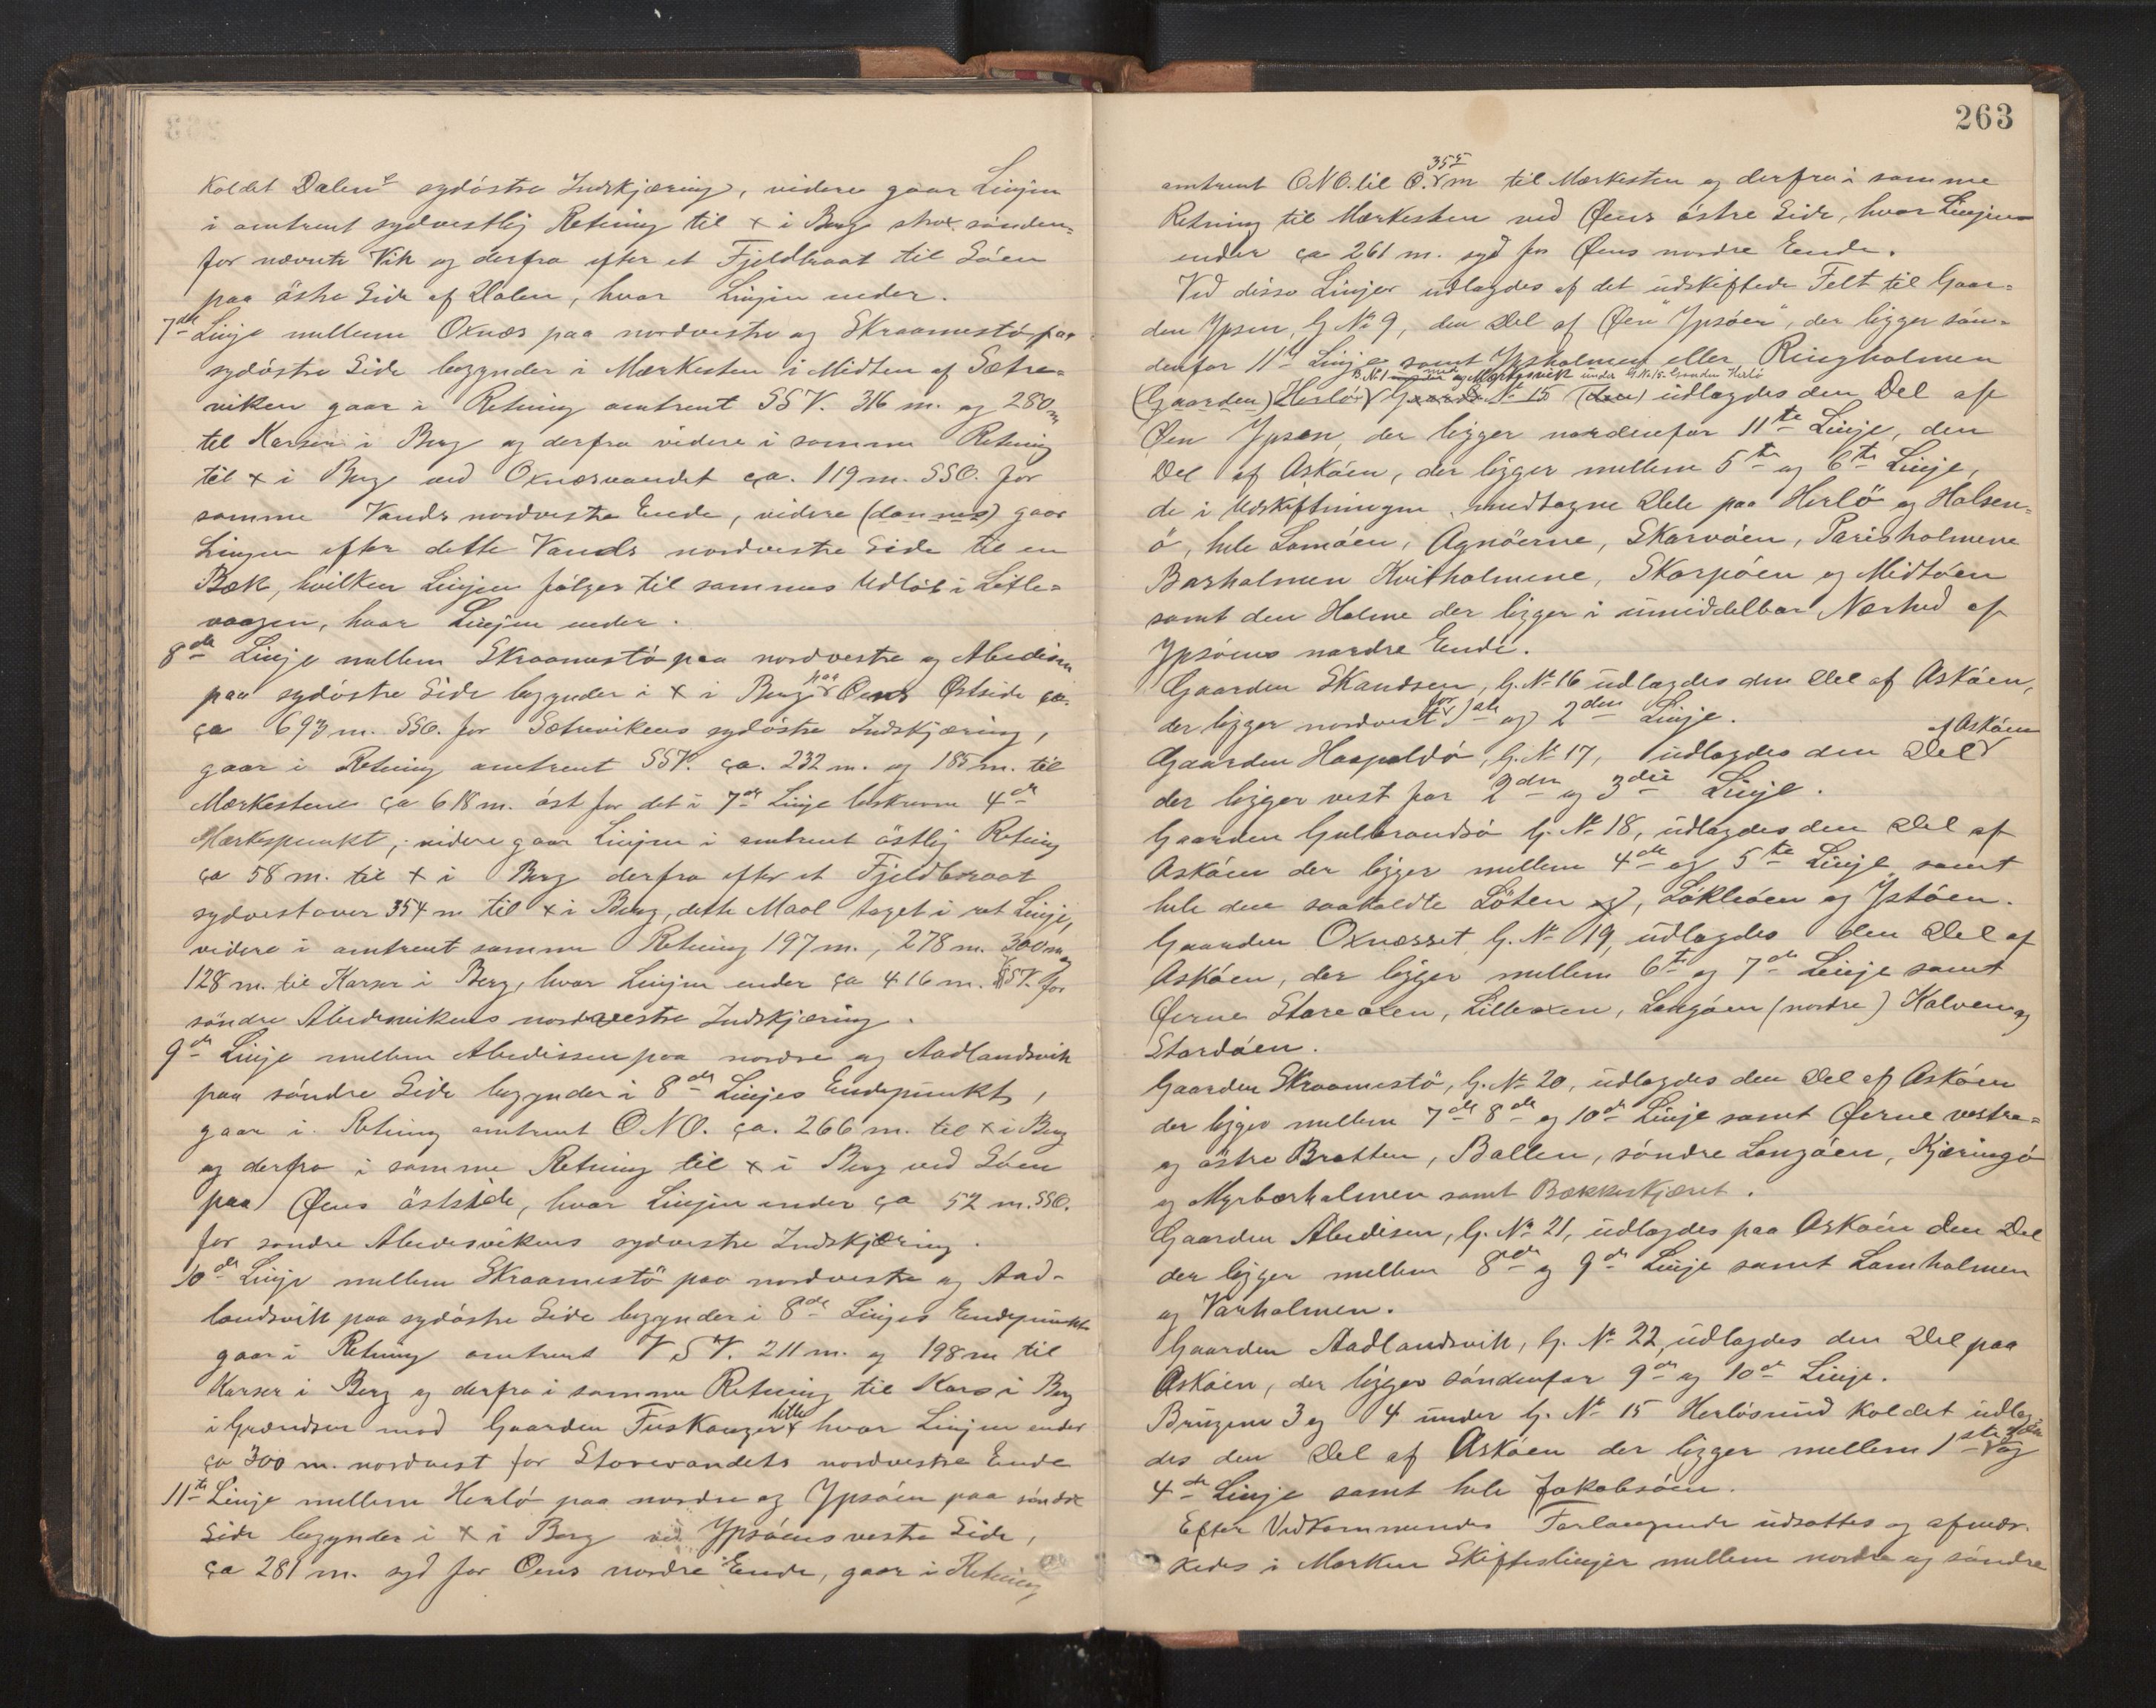 Kaldet Dalens sydöstre Indskjæring, videre gaar Linjen
i amtrent sydvestlig Retning til x i Berg strax sönden=
for nævnte Vik og derfra efter et Fjeldbraat til Söen
paa östre Side af Dalen, hvor Linjen ender.
7de Linje mellem Oxnæs paa nordvestre og Skraamestö paa
sydöstre Side begynder i Mærkesten i Midten af Sætre=
viken gaar i Retning amtrent SSV. 316 m. og 280 m
til Karser i Berg og derfra videre i samme Retning
til x i Berg ved Oxnæsvandet ça. 119 m. SSO. for
samme Vands nordvestre Ende, videre (dannes) gaar
Linjen efter dette Vands nordvestre Side til en
Bæk, hvilken Linjen fölger til sammes Udlöb i Litle=
vaagen, hvor Linjen ender.
8de Linje mellem Skraamestö paa nordvestre og Abedisen
paa sydöstre Side begynder i x i Berg paa Öens Östside
ça 693 m. SSO. for Sætrevikens sydöstre Indskjæring,
gaar i Retning amtrent SSV. ça. 232 m. og 185 m. til
Mærkestene ça 618 m. öst for det i 7de Linje beskrevne 4de
Mærkespunkt, videre gaar Linjen i amtrent östlig Retning
ça 58 m. til x i Berg derfra efter et Fjeldbraat
sydvestover 354 m til x i Berg, dette Maal taget i ret Linje,
videre i amtrent samme Retning 197 m., 278 m. 300 m og
128 m. til Karser i Berg, hvor Linjen ender ça 416 m. SSV. for
söndre Abedisvikens nordvestre Indskjæring.
9de Linje mellem Abedissen paa nordre og Aadlandsvik
paa söndre Side begynder i 8de Linjes Endepunkt,
gaar i Retning amtrent ONO. ça. 266 m. til x i Berg
og derfra i samme Retning til x i Berg ved Söen
paa Öens östside, hvor Linjen ender ça 52 m. SSO.
for söndre Abedisvikens sydvestre Indskjæring.
10de Linje mellem Skraamestö paa nordvestre og Aad=
landsvik paa sydöstre Side begynder i 8de Linjes Endepunkt
gaar i Retning amtrent VSV. 211 m. og 198 m til
Karser i Berg og derfra i samme Retning til Kars i Berg
i Grændsen mod Gaarden Fuskanger lille hvor Linjen ender
ça 300 m. nordvest for Storevandets nordvestre Ende
11te Linje mellem Herlö paa nordre og Ypsöen paa söndre
Side begynder i x i Berg ved Ypsöens vestre Side,
ça 281 m. syd for Öens nordre Ende, gaar i Retning
263
amtrent ONO. til O. 355 m til Mærkesten og derfra i samme
Retning til Mærkesten ved Öens östre Side, hvor Linjen
ender ça 261 m. syd for Öens nordre Ende.
Ved disse Linjer udlagdes af det udskiftede Felt til Gaar=
den Ypsen, G. No 9, den Del af Öen "Ypsöen", der ligger sön=
denfor 11te Linje samt Ypsholmen eller Ringholmen
B. No 1 Mortesvik under G. No 15. Gaarden Herlö
(Gaarden) Herlö Gaards No 15 (den) udlagdes den Del af
Öen Ypsen, der ligger nordenfor 11te Linje, den
Del af Asköen, der ligger mellem 5te og 6te Linje,
de i Udskiftningen medtagne Dele paa Herlö og Holsen=
ö, hele Lamöen, Agnöerne, Skarvöen, Parisholmene
Barholmen Kvitholmene, Skarpöen og Midtöen
samt den Holme der ligger i umiddelbar Nærhed af
Ypsöens nordre Ende.
Gaarden Skandsen, G. No 16 udlagdes den Del af Asköen,
der ligger nordvest for 1ste og 2den Linje.
Gaarden Haapoldö, G. No 17, udlagdes den Del af Asköen
der ligger vest for 2den og 3die Linje.
Gaarden Gulbrandsö G. No 18, udlagdes den Del af
Asköen der ligger mellem 4de og 5te Linje samt
hele den saakaldte Löten og, Löklöen og Ystöen.
Gaarden Oxnæsset G. No 19, udlagdes den Del af
Asköen, der ligger mellem 6te og 7de Linje samt
Öerne Storeoxen, Lilleoxen, Langöen (nordre) Kalven og
Stordöen.
Gaarden Skraamestö, G. No 20, udlagdes den Del af Asköen
der ligger mellem 7de 8de og 10de Linje samt Öerne vestre=
og östre Bratten, Ballen, söndre Langöen, Kjæringö
og Myrbærholmen samt Bækkeskjæret.
Gaarden Abedisen, G. No 21, udlagdes paa Asköen den Del
der ligger mellem 8de og 9de Linje samt Lamholmen
og Varholmen.
Gaarden Aadlandsvik, G. No 22, udlagdes den Del paa
Asköen, der ligger söndenfor 9de og 10de Linje.
Brugene 3 og 4 under G. No 15 Herlösund kaldet udlag=
des den Del af Asköen der ligger mellem 1ste 3die og
4de Linje samt hele Jakobsöen.
Efter Vedkommendes Forlangende udsattes og afmær=
kedes i Marken Skifteslinjer mellem nordre og söndre